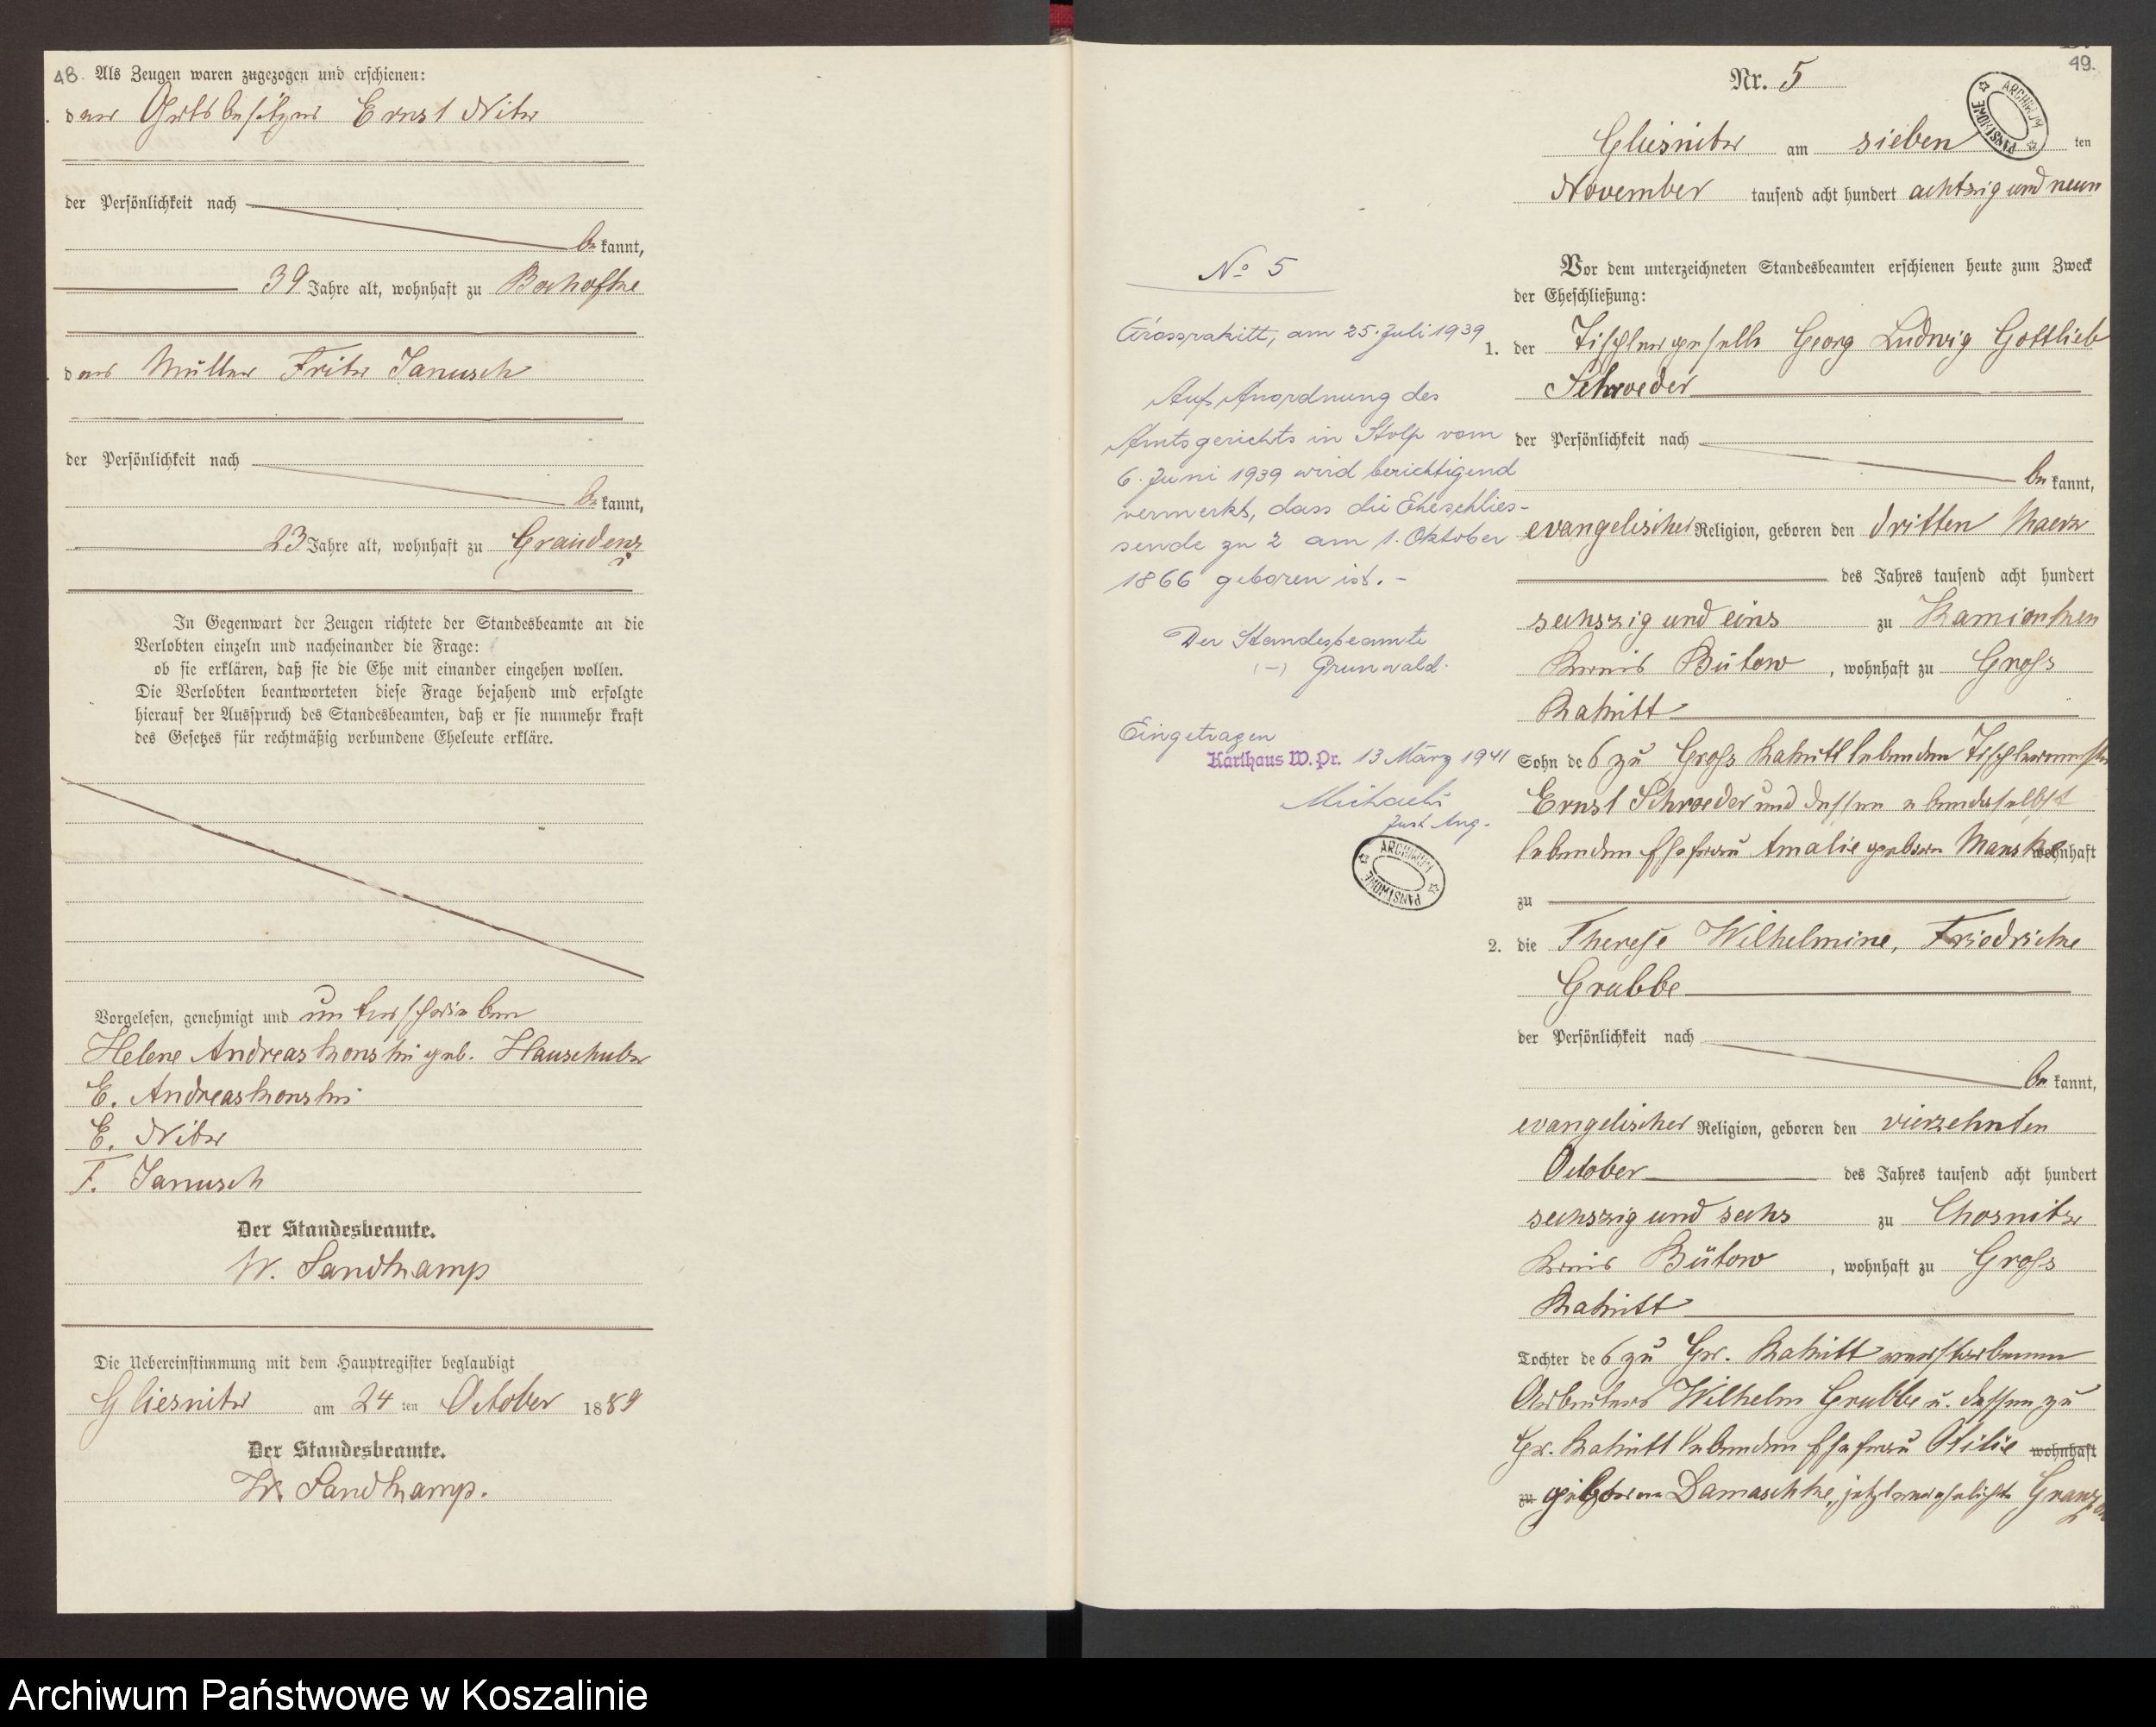 48. Als Zeugen waren zugezogen und erschienen:
der Gutsbesitzer Ernst Nitz
der Persönlichkeit nach
be kannt,
39 Jahre alt, wohnhaft zu
der Müller Fritz Janusch
der Persönlichkeit nach
be kannt,
23 Jahre alt, wohnhaft zu Graudenz
In Gegenwart der Zeugen richtete der Standesbeamte an die
Verlobten einzeln und nacheinander die Frage:
ob sie erklären, daß sie die Ehe mit einander eingehen wollen.
Die Verlobten beantworteten diese Frage bejahend und erfolgte
hierauf der Ausspruch des Standesbeamten, daß er sie nunmehr kraft
des Gesetzes für rechtmäßig verbundene Eheleute erkläre.
Vorgelesen, genehmigt und unterschrieben
Helene geb.
E.
E. Nitz
F. Janusch
Der Standesbeamte.
W. Sandkamp
Die Uebereinstimmung mit dem Hauptregister beglaubigt
Gliesnitz am 24 ten October 1889
Der Standesbeamte.
W. Sandkamp.
49.
Nr. 5
ARCHIWUM PAŃSTWOWE
Gliesnitz am sieben ten
November tausend acht hundert achtzig und neun
Vor dem unterzeichneten Standesbeamten erschienen heute zum Zweck
der Eheschließung:
1. der Tischlergeselle Georg Ludwig Gottlieb
Schroeder
der Persönlichkeit nach
be kannt,
evangelischer Religion, geboren den dritten Maerz
des Jahres tausend acht hundert
sechszig und eins zu Kamionken
Kreis Bütow, wohnhaft zu Gross
Rakitt
Sohn des zu Gross Rakitt lebenden Tischlermeisters
Ernst Schroeder und dessen ebendaselbst
lebenden Ehefrau Amalie geboren Manske wohnhaft
zu
2. die Therese Wilhelmine, Friedricke
Grubbe
der Persönlichkeit nach
be kannt,
evangelischer Religion, geboren den vierzehnten
October des Jahres tausend acht hundert
sechszig und sechs zu Chosnitz
Kreis Bütow, wohnhaft zu Gross
Rakitt
Tochter des zu Gr. Rakitt verstorbenen
Arbeiters Wilhelm Grubbe u. dessen zu
Gr. Rakitt lebenden Ehefrau Otilie wohnhaft
zu geboren Damaschke, jetzt verehelichte
No 5
Grossrakitt, am 25. Juli 1939
Auf Anordnung des
Amtsgerichts in Stolp vom
6. Juni 1939 wird berichtigend
vermerkt, dass die Eheschlies-
sende zu 2 am 1. Oktober
1866 geboren ist. -
Der Standesbeamte
(-) Grunwald.
Eingetragen
Karthaus W. Pr. 13 März 1941
Michaelis
Just. Ang.
ARCHIWUM PAŃSTWOWE
Archiwum Państwowe w Koszalinie